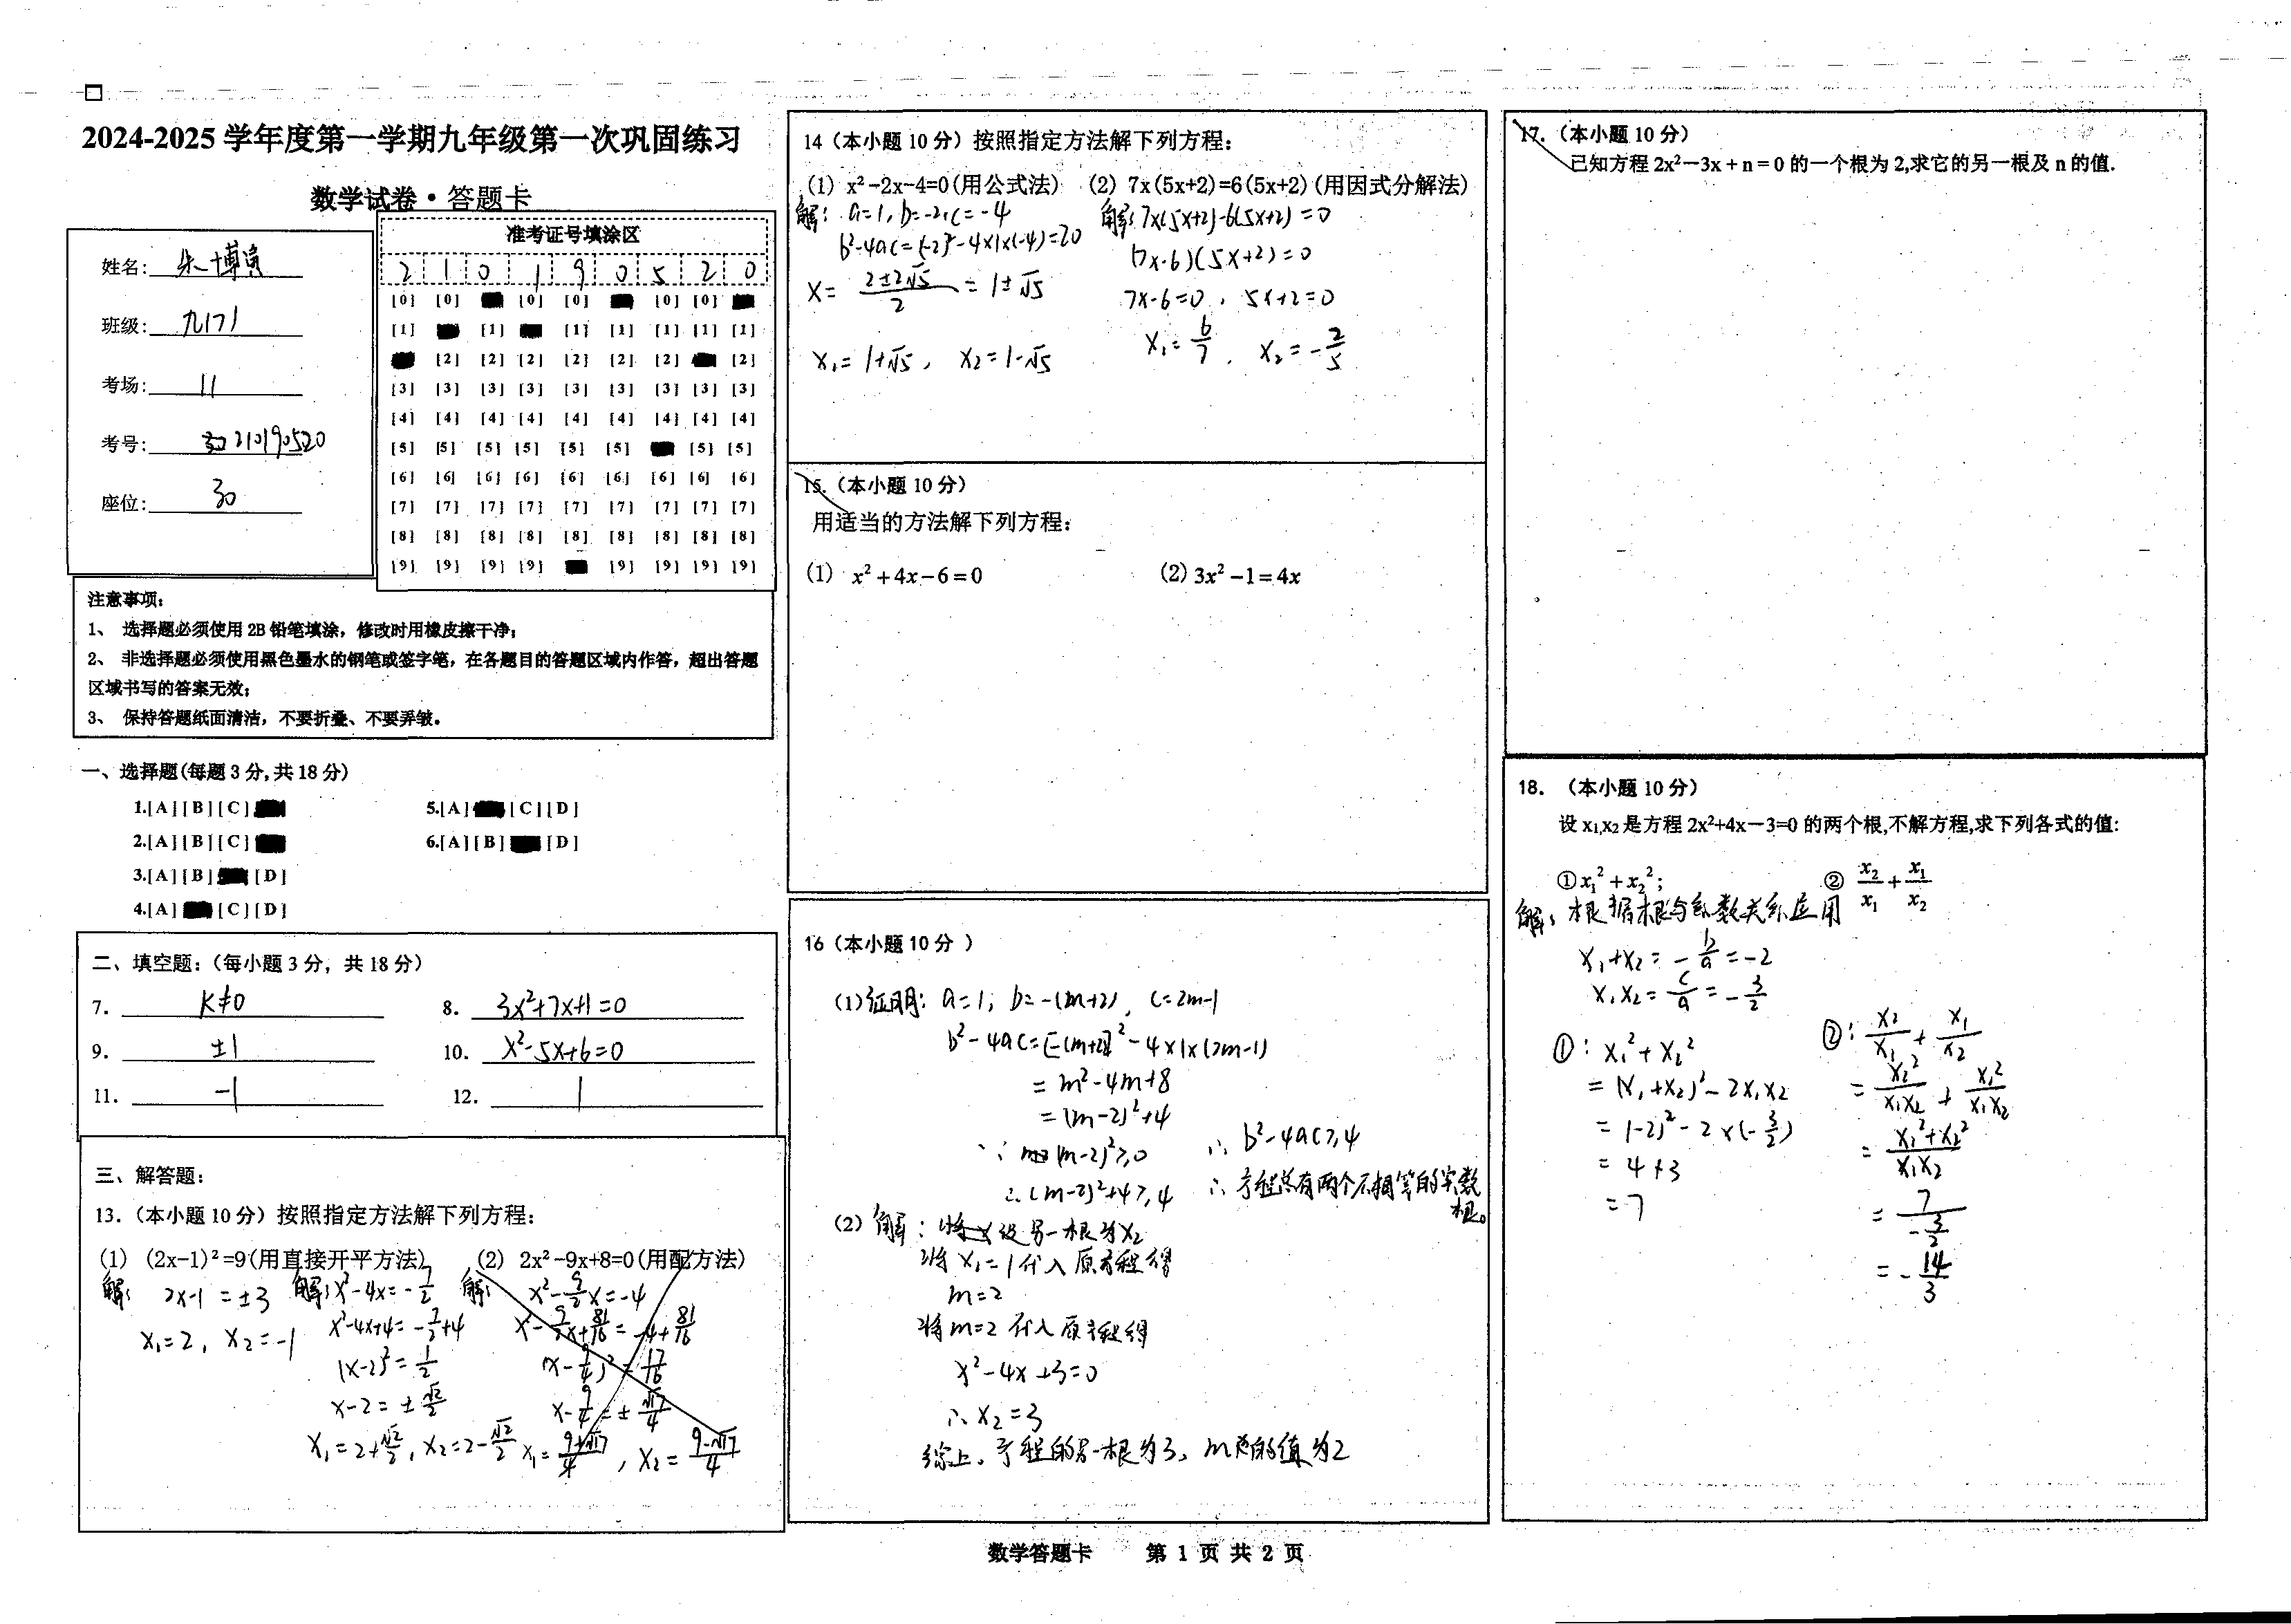 2024-2025 学年度第一学期九年级第一次巩固练习
数学试卷·答题卡
姓名：朱博寅
班级：九(7)
考场：11
考号：210190520
座位：30
准考证号填涂区
2 1 0 1 9 0 5 2 0
[0] [0] [0] [0] [0] [0]
[1] [1] [1] [1] [1] [1] [1]
[2] [2] [2] [2] [2] [2] [2]
[3] [3] [3] [3] [3] [3] [3] [3] [3]
[4] [4] [4] [4] [4] [4] [4] [4] [4]
[5] [5] [5] [5] [5] [5] [5] [5]
[6] [6] [6] [6] [6] [6] [6] [6] [6]
[7] [7] [7] [7] [7] [7] [7] [7] [7]
[8] [8] [8] [8] [8] [8] [8] [8] [8]
[9] [9] [9] [9] [9] [9] [9] [9]
注意事项：
1、 选择题必须使用 2B 铅笔填涂，修改时用橡皮擦干净；
2、 非选择题必须使用黑色墨水的钢笔或签字笔，在各题目的答题区域内作答，超出答题
区域书写的答案无效；
3、 保持答题纸面清洁，不要折叠、不要弄皱。
一、选择题(每题 3 分,共 18 分)
1.[A][B][C]
5.[A] [C][D]
2.[A][B][C]
6.[A][B] [D]
3.[A][B] [D]
4.[A] [C][D]
二、填空题：（每小题 3 分，共 18 分）
7. k≠0
8. 3x²+7x+1=0
9. ±1
10. x²-5x+6=0
11. -1
12. 1
三、解答题：
13.（本小题 10 分）按照指定方法解下列方程：
(1) (2x-1)²=9(用直接开平方法)
(2) 2x²-9x+8=0(用配方法)
解: 2x-1=±3
x₁=2, x₂=-1
解:x²-4x=-7/2
x²-4x+4=-7/2+4
(x-2)²=1/2
x-2=±√2/2
x₁=2+√2/2, x₂=2-√2/2
解: x²-9/2x=-4
x²-9/2x+81/16=-4+81/16
(x-9/4)²=17/16
x-9/4=±√17/4
x₁=(9+√17)/4, x₂=(9-√17)/4
14（本小题 10 分）按照指定方法解下列方程：
(1) x²-2x-4=0(用公式法)
(2) 7x(5x+2)=6(5x+2)(用因式分解法)
解: a=1,b=-2,c=-4
b²-4ac=(-2)²-4×1×(-4)=20
x=(2±2√5)/2=1±√5
x₁=1+√5, x₂=1-√5
解:7x(5x+2)-6(5x+2)=0
(7x-6)(5x+2)=0
7x-6=0, 5x+2=0
x₁=6/7, x₂=-2/5
15.（本小题 10 分）
用适当的方法解下列方程：
(1) x²+4x-6=0
(2) 3x²-1=4x
16（本小题 10 分 ）
(1)证明: a=1, b=-(m+2), c=2m-1
b²-4ac=[-(m+2)]²-4×1×(2m-1)
=m²-4m+8
=(m-2)²+4
∵ (m-2)²≥0
∴(m-2)²+4≥4
∴ b²-4ac≥4
∴ 方程总有两个不相等的实数
根。
(2) 解: 设另一根为x₂
将 x₁=1代入原方程得
m=2
将m=2代入原方程得
x²-4x+3=0
∴x₂=3
综上,方程的另一根为3, m的值为2
17.（本小题 10 分）
已知方程 2x²-3x+n=0 的一个根为 2,求它的另一根及 n 的值.
18. （本小题 10 分）
设 x₁,x₂ 是方程 2x²+4x-3=0 的两个根,不解方程,求下列各式的值:
①x₁²+x₂²;
② x₂/x₁+x₁/x₂
解: 根据根与系数关系应用
x₁+x₂=-b/a=-2
x₁x₂=c/a=-3/2
①: x₁²+x₂²
=(x₁+x₂)²-2x₁x₂
=(-2)²-2×(-3/2)
=4+3
=7
②: x₂/x₁+x₁/x₂
=x₂²/x₁x₂+x₁²/x₁x₂
=(x₁²+x₂²)/x₁x₂
=7/(-3/2)
=-14/3
数学答题卡 第 1 页 共 2 页